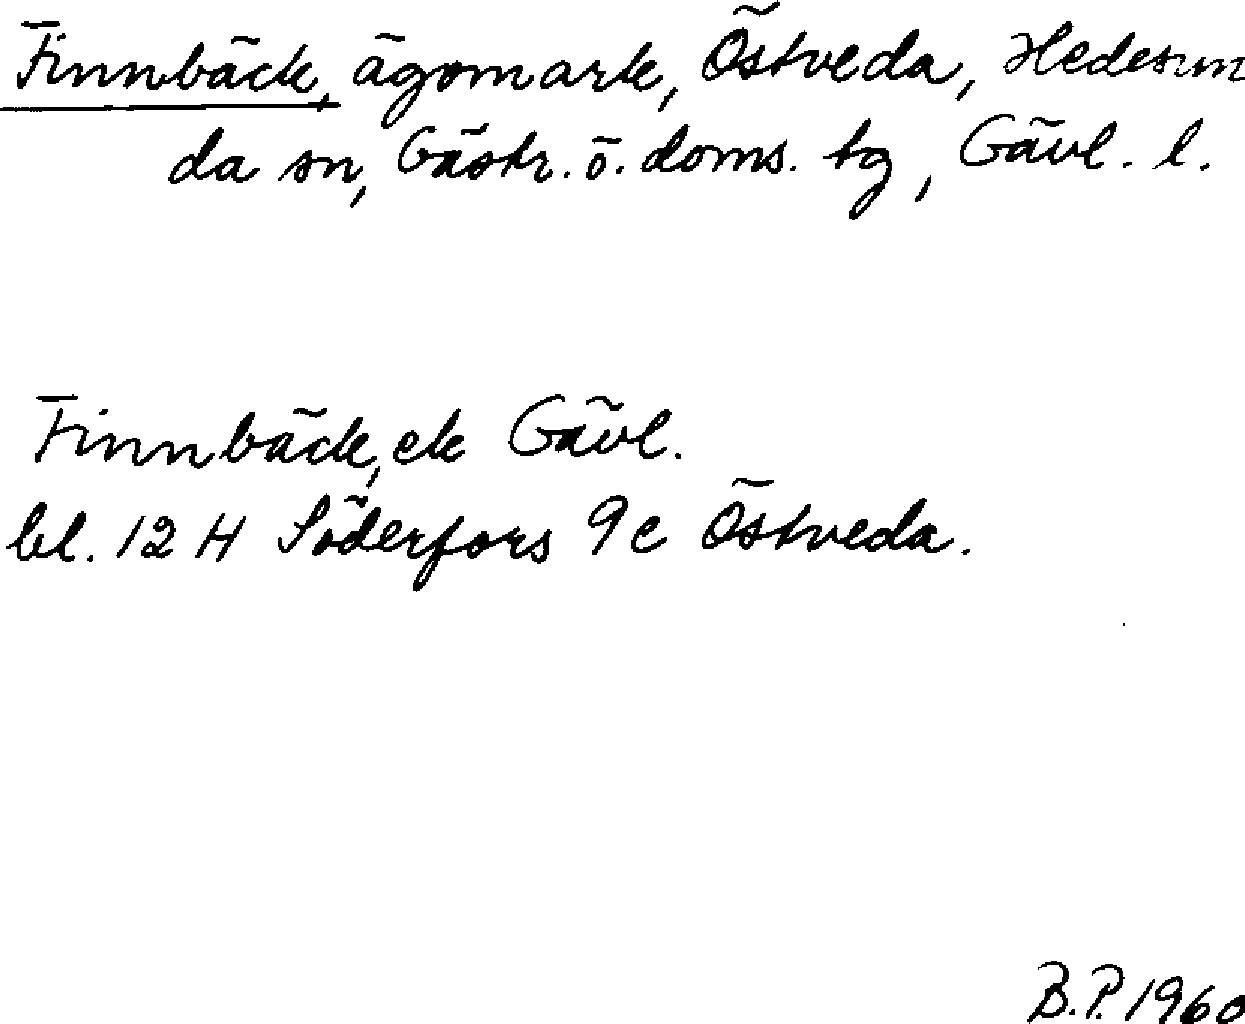 Finnbäck, ägomark, Östveda, Hedesun
da sn, Gästr. ö. doms. tg, Gävl. l.
Finnbäck, ek Gävl.
bl. 12 H Söderfors 9c Östveda.
B.P. 1960